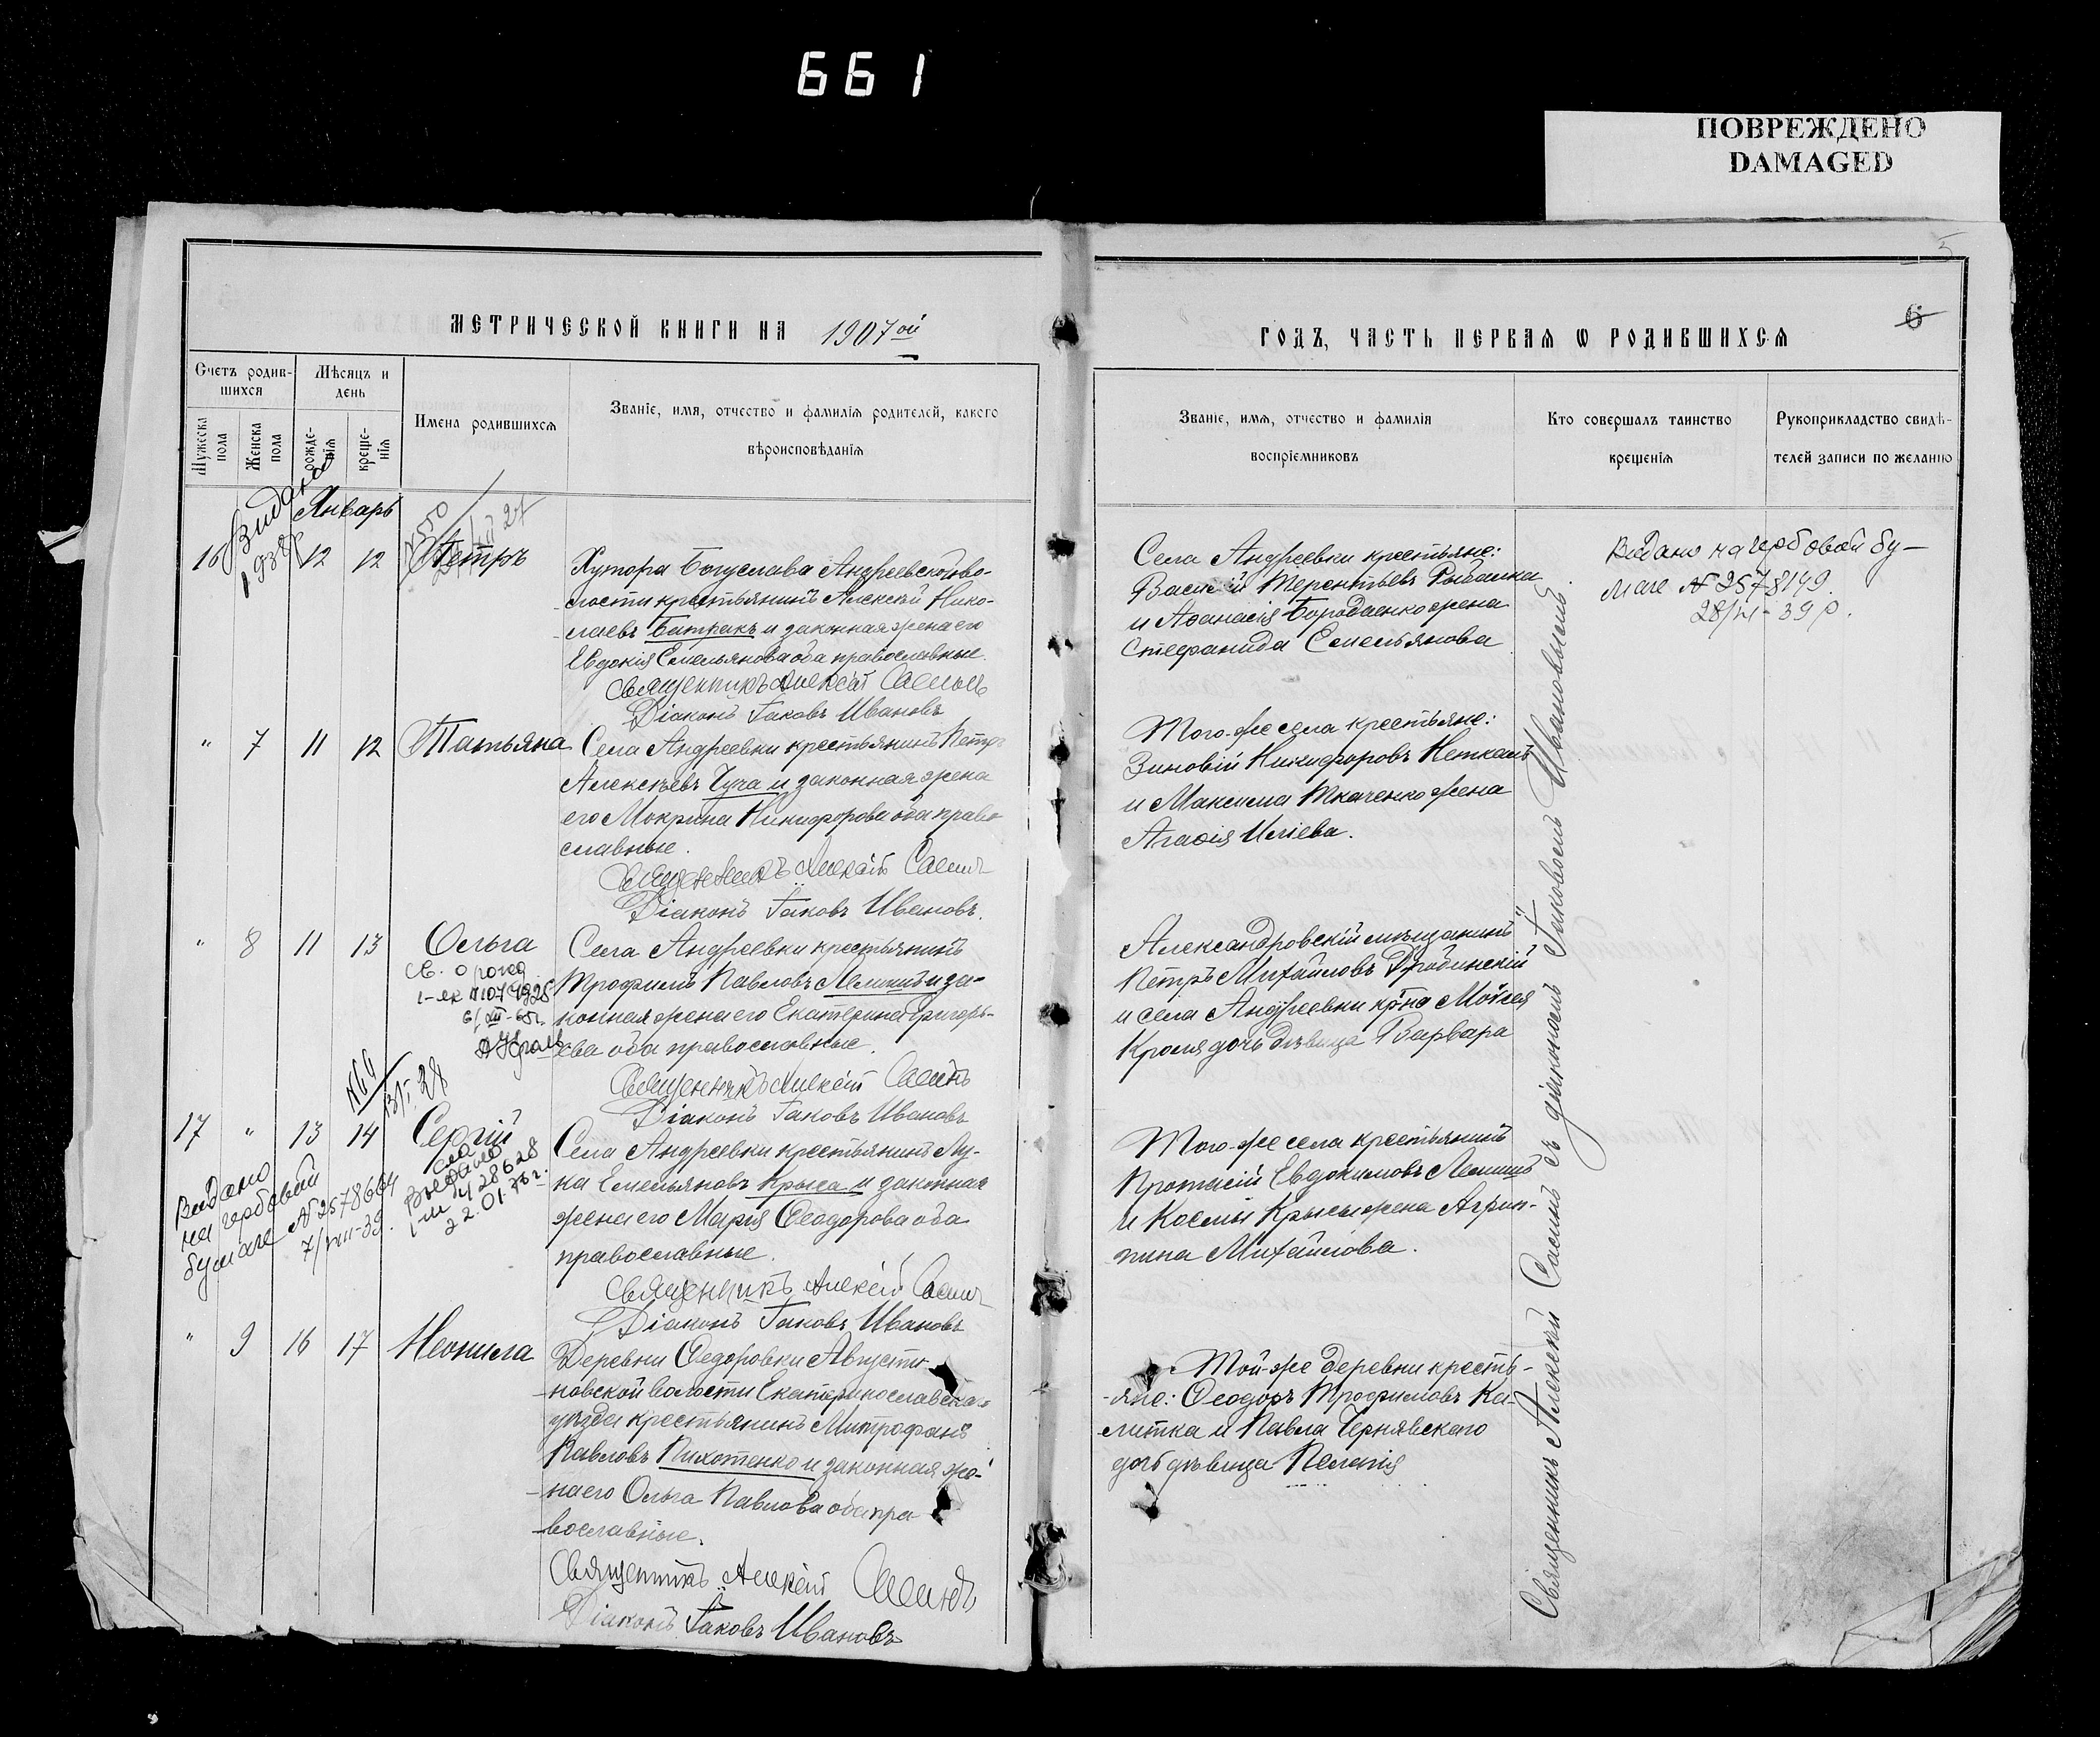 661
ПОВРЕЖДЕНО
DAMAGED
5
6
МЕТРИЧЕСКОЙ КНИГИ НА 1907ой
ГОДЪ, ЧАСТЬ ПЕРВАЯ Ѡ РОДИВШИХСЯ
Счетъ родив-
шихся
Мѣсяцъ и
день
Мужеска
пола
Женска
пола
рожде-
нія
креще-
нія
Имена родившихся
Званіе, имя, отчество и фамилія родителей, какого
вѣроисповѣданія
Званіе, имя, отчество и фамилія
воспріемниковъ
Кто совершалъ таинство
крещенія
Рукоприкладство свидѣ-
телей записи по желанію
Январь
16 12 12 Петръ
Хутора Богуслава Андреевской во-
лости крестьянинъ Алексѣй Нико-
лаевъ Батракъ и законная жена его
Евдокія Емельянова оба православные.
Священникъ Алексій
Діаконъ Іаковъ Ивановъ
Села Андреевки крестьяне:
Василій Терентьевъ Рыбалка
и Аѳанасія Бородаенко жена
Стефанида Емельянова
Видано на гербовой бу-
маге № 2578149.
" 7 11 12 Татьяна
Села Андреевки крестьянинъ Петръ
Алексѣевъ Чуча и законная жена
его Мокрина Никифорова оба право-
славные.
Священникъ Алексій
Діаконъ Іаковъ Ивановъ.
Того-же села крестьяне:
Зиновій Никифоровъ
и Максима Ткаченко жена
Агаѳія Иліева.
" 8 11 13 Ольга
6/XII-65г.
Села Андреевки крестьянинъ
Трофимъ Павловъ Лемишъ и за-
конная жена его Екатерина Григорь-
ева оба православные.
Священникъ Алексій
Діаконъ Іаковъ Ивановъ
Александровскій мѣщанинъ
Петръ Михайловъ
и села Андреевки кр-на Моисея
Кроля дочь дѣвица Варвара
№64
13/I 28
17 " 13 14 Сергій
Видано
на гербовой
бумаге № 2578664
7/VIII-39.
22.01.73г.
Села Андреевки крестьянинъ Лу-
ка Емельяновъ Крыса и законная
жена его Марія Ѳеодорова оба
православные.
Священникъ Алексій
Діаконъ Іаковъ Ивановъ
Того-же села крестьянинъ
Протасій Евдокимовъ Лемишъ
и Космы Крысы жена Агрип-
пина Михайлова.
" 9 16 17 Неонила
Деревни Ѳедоровки Августи-
новской волости Екатеринославска-
уѣзда крестьянинъ Митрофанъ
Павловъ Пихотенко и законная же-
на его Ольга Павлова оба пра-
вославные.
Священникъ Алексій
Діаконъ Іаковъ Ивановъ
Той-же деревни кресть-
яне: Ѳеодоръ Трофимовъ Ка-
литка и Павла Чернявскаго
дочь дѣвица Пелагія
Священникъ Алексій съ діакономъ Іаковомъ Ивановымъ.